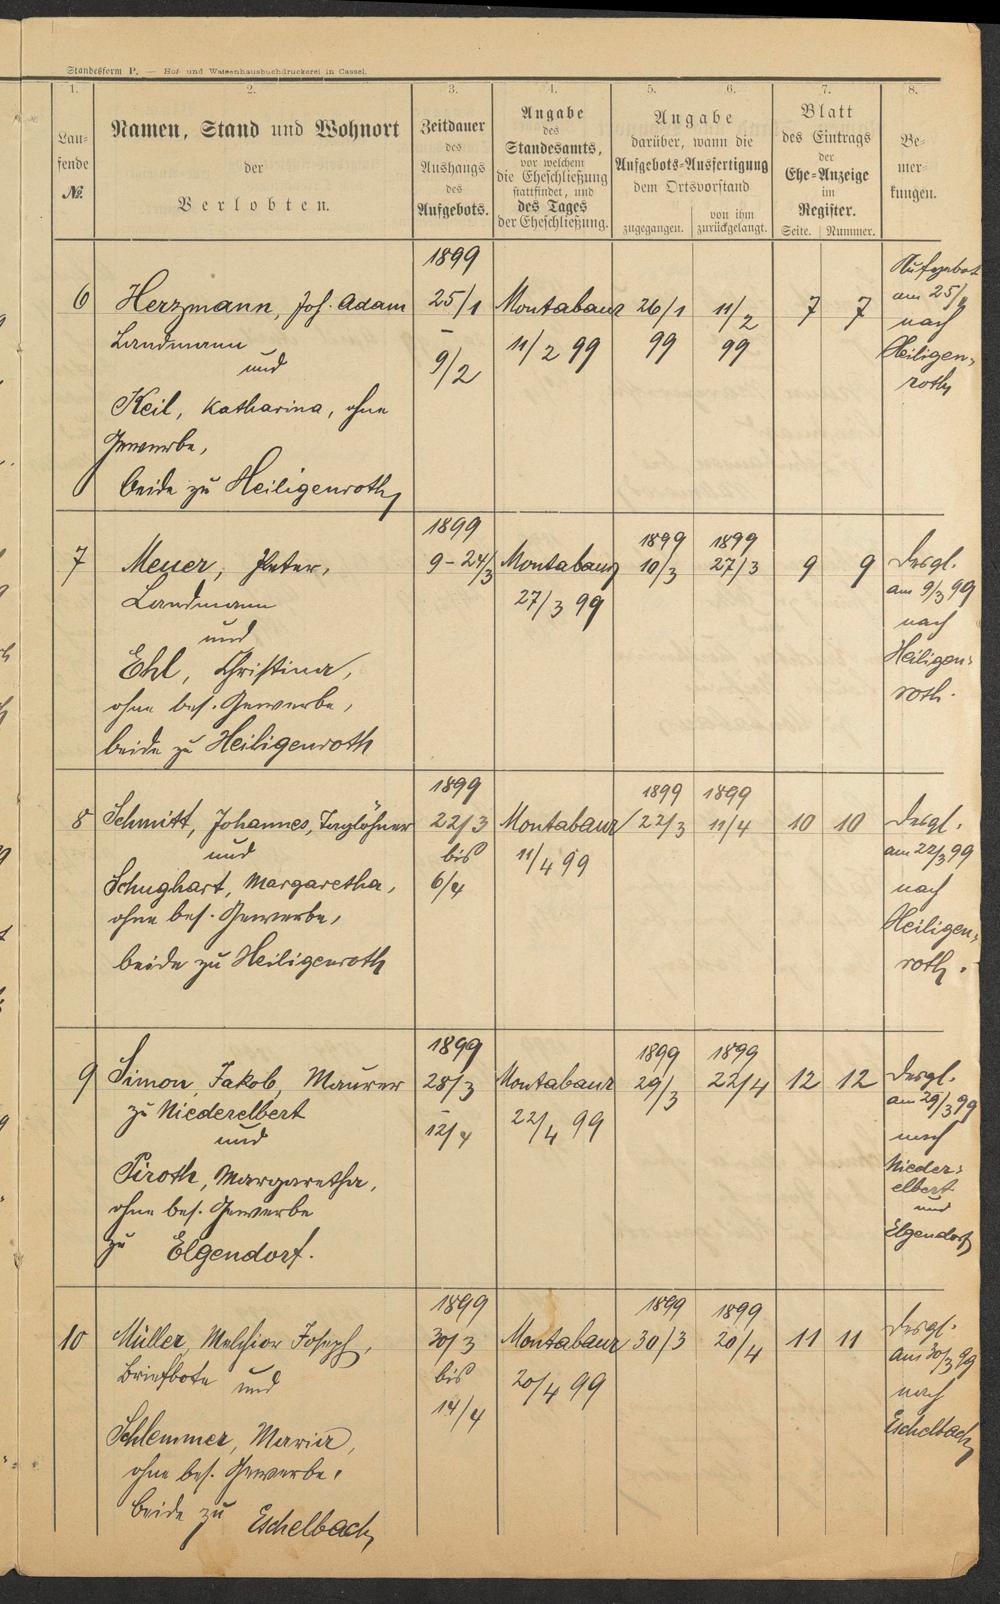 Standesform P. — Hof- und Waisenhausbuchdruckerei in Cassel.
1. 2. 3. 4. 5. 6. 7. 8.
Lau-
fende
№.
Namen, Stand und Wohnort
der
Verlobten.
Zeitdauer
des
Aushangs
des
Aufgebots.
Angabe
des
Standesamts,
vor welchem
die Eheschließung
stattfindet, und
des Tages
der Eheschließung.
Angabe
darüber, wann die
Aufgebots-Ausfertigung
dem Ortsvorstand
zugegangen.
von ihm
zurückgelangt.
Blatt
des Eintrags
der
Ehe-Anzeige
im
Register.
Seite. Nummer.
Be-
mer-
kungen.
6
Herzmann, Joh. Adam
Landmann
und
Keil, Katharina, ohne
Gewerbe,
beide zu Heiligenroth,
1899
25/1
–
9/2
Montabaur
11/2 99
26/1
99
11/2
99
7 7
Aufgebot
am 25/1
nach
Heiligen-
roth
7
Meuer, Peter,
Landmann
und
Ehl, Christina,
ohne bes. Gewerbe,
beide zu Heiligenroth
1899
9-24/3
Montabaur
27/3 99
1899
10/3
1899
27/3
9 9
desgl.
am 9/3 99
nach
Heiligen-
roth.
8
Schmitt, Johannes, Taglöhner
und
Schughart, Margaretha,
ohne bes. Gewerbe,
beide zu Heiligenroth
1899
22/3
bis
6/4
Montabaur
11/4 99
1899
22/3
1899
11/4
10 10
desgl.
am 22/3 99
nach
Heiligen-
roth.
9
Simon, Jakob, Maurer
zu Niederelbert
und
Piroth, Margaretha,
ohne bes. Gewerbe
zu Elgendorf.
1899
28/3
–
12/4
Montabaur
22/4 99
1899
29/3
1899
22/4
12 12
desgl.
am 29/3 99
nach
Nieder-
elbert
und
Elgendorf
10
Müller, Melchior Joseph,
Briefbote und
Schlemmer, Maria,
ohne bes. Gewerbe,
beide zu Eschelbach,
1899
30/3
bis
14/4
Montabaur
20/4 99
1899
30/3
1899
20/4
11 11
desgl.
am 30/3 99
nach
Eschelbach